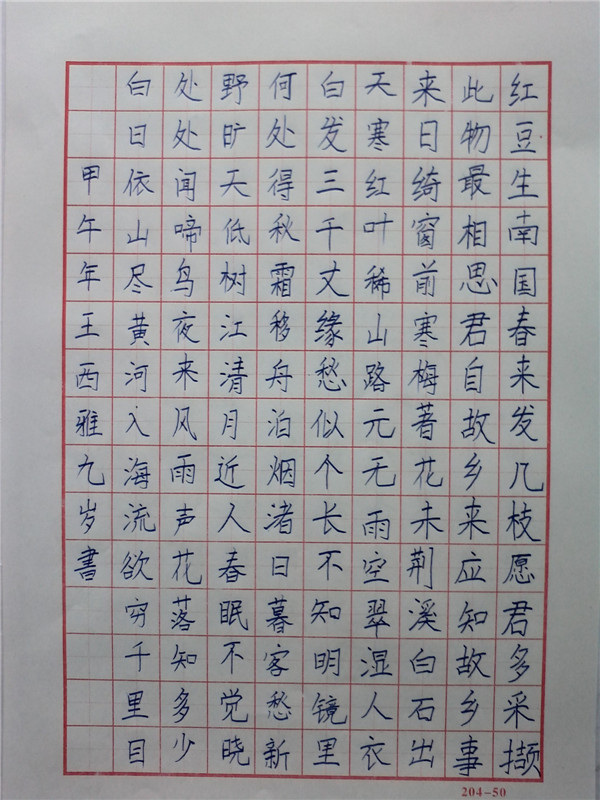 红豆生南国春来发几枝愿君多采撷
此物最相思君自故乡来应知故乡事
来日绮窗前寒梅著花未荆溪白石出
天寒红叶稀山路元无雨空翠湿人衣
白发三千丈缘愁似个长不知明镜里
何处得秋霜移舟泊烟渚日暮客愁新
野旷天低树江清月近人春眠不觉晓
处处闻啼鸟夜来风雨声花落知多少
白日依山尽黄河入海流欲穷千里目
甲午年王西雅九岁書
204-50